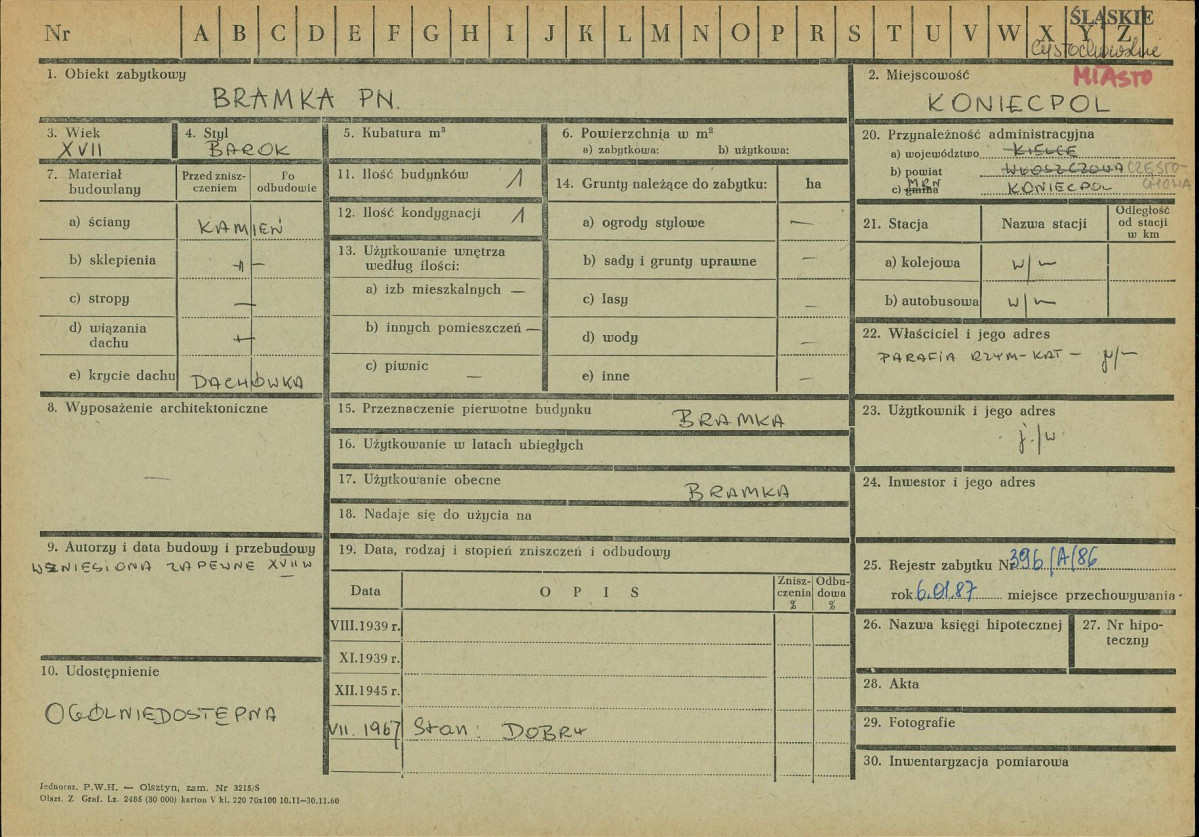 Nr A B C D E F G H I J K L M N O P R S T U V W X Y Z
ŚLĄSKIE
MIASTO
1. Obiekt zabytkowy
BRAMKA PN.
2. Miejscowość
KONIECPOL
3. Wiek
XVII
4. Styl
BAROK
5. Kubatura m³
6. Powierzchnia w m²
a) zabytkowa: b) użytkowa:
7. Materiał budowlany
Przed znisz-
czeniem
Po
odbudowie
a) ściany KAMIEŃ
b) sklepienia —
c) stropy —
d) wiązania
dachu —
e) krycie dachu DACHÓWKA
8. Wyposażenie architektoniczne
—
9. Autorzy i data budowy i przebudowy
WZNIESIONA ZAPEWNE XVII W
10. Udostępnienie
OGÓLNIEDOSTĘPNA
11. Ilość budynków 1
12. Ilość kondygnacji 1
13. Użytkowanie wnętrza
według ilości:
a) izb mieszkalnych —
b) innych pomieszczeń —
c) piwnic —
14. Grunty należące do zabytku: ha
a) ogrody stylowe —
b) sady i grunty uprawne —
c) lasy —
d) wody —
e) inne —
15. Przeznaczenie pierwotne budynku BRAMKA
16. Użytkowanie w latach ubiegłych
17. Użytkowanie obecne BRAMKA
18. Nadaje się do użycia na
19. Data, rodzaj i stopień zniszczeń i odbudowy
Data O P I S Znisz-
czenia
% Odbu-
dowa
%
VIII.1939 r.
XI.1939 r.
XII.1945 r.
VII. 1967 Stan: DOBRY
20. Przynależność administracyjna
a) województwo KIELCE
b) powiat WŁOSZCZOWA CZĘSTO-
CHOWA
c) gmina MRN KONIECPOL
21. Stacja Nazwa stacji Odległość
od stacji
w km
a) kolejowa w/—
b) autobusowa w/—
22. Właściciel i jego adres
PARAFIA RZYM-KAT —
23. Użytkownik i jego adres
j./w
24. Inwestor i jego adres
25. Rejestr zabytku Nr 396/A/86
rok 6.01.87 miejsce przechowywania
26. Nazwa księgi hipotecznej
27. Nr hipo-
teczny
28. Akta
29. Fotografie
30. Inwentaryzacja pomiarowa
Jednoraz. P.W.H. — Olsztyn, zam. Nr 3215/S
Olszt. Z Graf. Lz. 2485 (30 000) karton V kl. 220 70x100 10.11—30.11.60